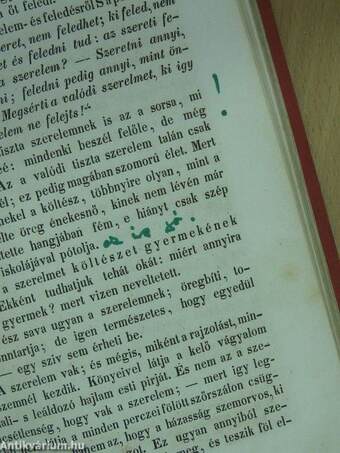 n őt feled.
elem- és feledésről Sap
ni: feled, nem feledhet; ki feled, nem
ret, nem feled
et és feledni tud: az szereti fe-
edni? — Szeretni annyi,
a szerelem? — Szeretni annyi,
ni; feledni pedig annyi, mint ön-
Megsérti a valódi szerelmet, ki így
elem ne felejts!"
tiszta szerelemnek is az a sorsa, mi
é: mindenki beszél felőle, de még
Az a valódi tiszta szerelem talán csak
él; ez pedig magában szomorú élet. Mert
nekel a költész, többnyire olyan, mint a
lte öreg énekesnő, kinek nem lévén már
tette hangjában fém, e hiányt csak szép
iskolájával pótolja. ez is jó!
a szerelmet költészet gyermekének
Ekként tudhatjuk tehát okát: miért annyira
gyermek? mert vizen neveltetett.
ész sava ugyan a szerelemnek; öregbíti, to-
nntartja; de igen természetes, hogy egyedül
— egy sziv sem érheti be.
A szerelem vak; és mégis, miként a rajzolást, min-
szemnél kezdik. Könyeivel látja a kelő vágyalom
s leáldozó hajlam esti pirját. És nem az a sze-
csedenség, hogy vak a szerelem; — mert így leg-
látja a minden perczei fölött szőrszálon csüg-
hanem az, hogy a házasság szemorvos, ki
got. Ez ugyan annyiból sze-
meg, és teszik föl el-